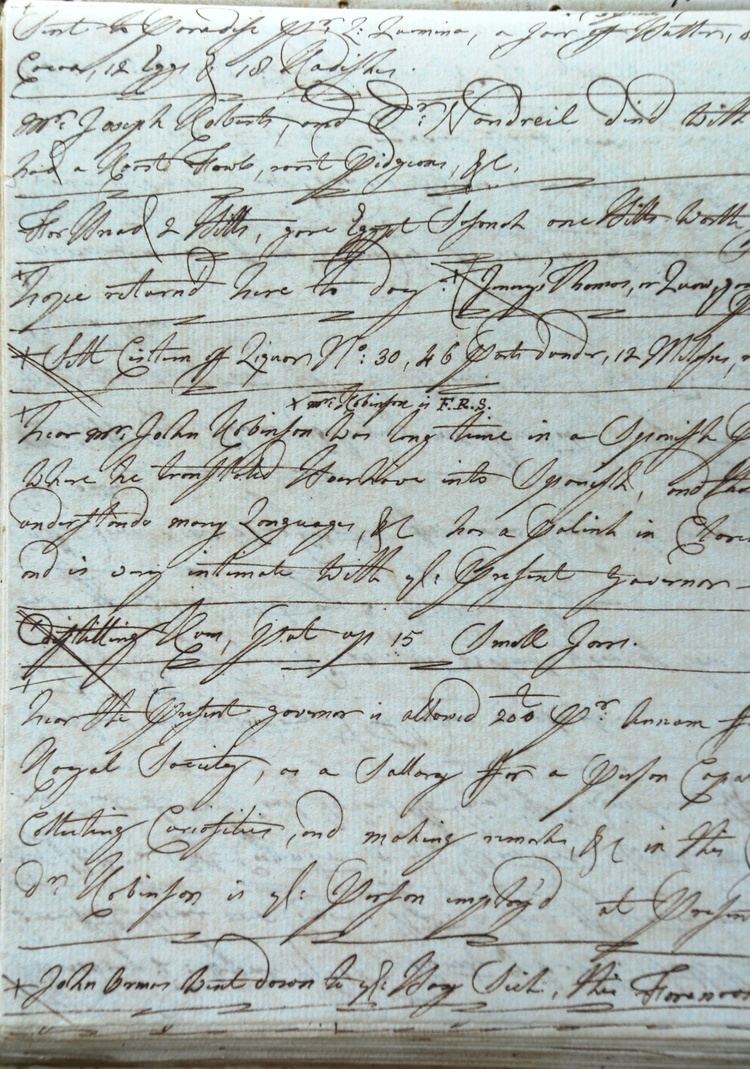 Sent to Paradise pr. Q: Quamina, a Jarr of Butter,
Cocoa, 12 Eggs & 18 Radishes.
mr: Joseph Roberts, and Dr: Wandreil din'd with
had a Roast Fowls, roast Pidgeons, &c.
For Bread 2 Bitts, gave Egypt Susanah one Bitt worth
hope return'd here to day.
* Sett Cistern of Liquor No: 30, 46 Parts dunder, 12 Molases,
x mr: Robinson is F.R.S.
hear mr: John Robinson was long time in a Spanish
where he translated Boerhave into Spanish, and
understands many Languages, &c has a Salink in
and is very intimate with ye: Present Governor
Distilling Rum, Put up 15 Small Jarrs.
hear the Present Governor is allowed 200 £ Pr. Annum
Royal Society, as a Sallary for a Person
Collecting Curiosities, and making remarks, &c in this
dr. Robinson is ye: Person employ'd at
* John Ormas went down to ye: Bay Sick, this